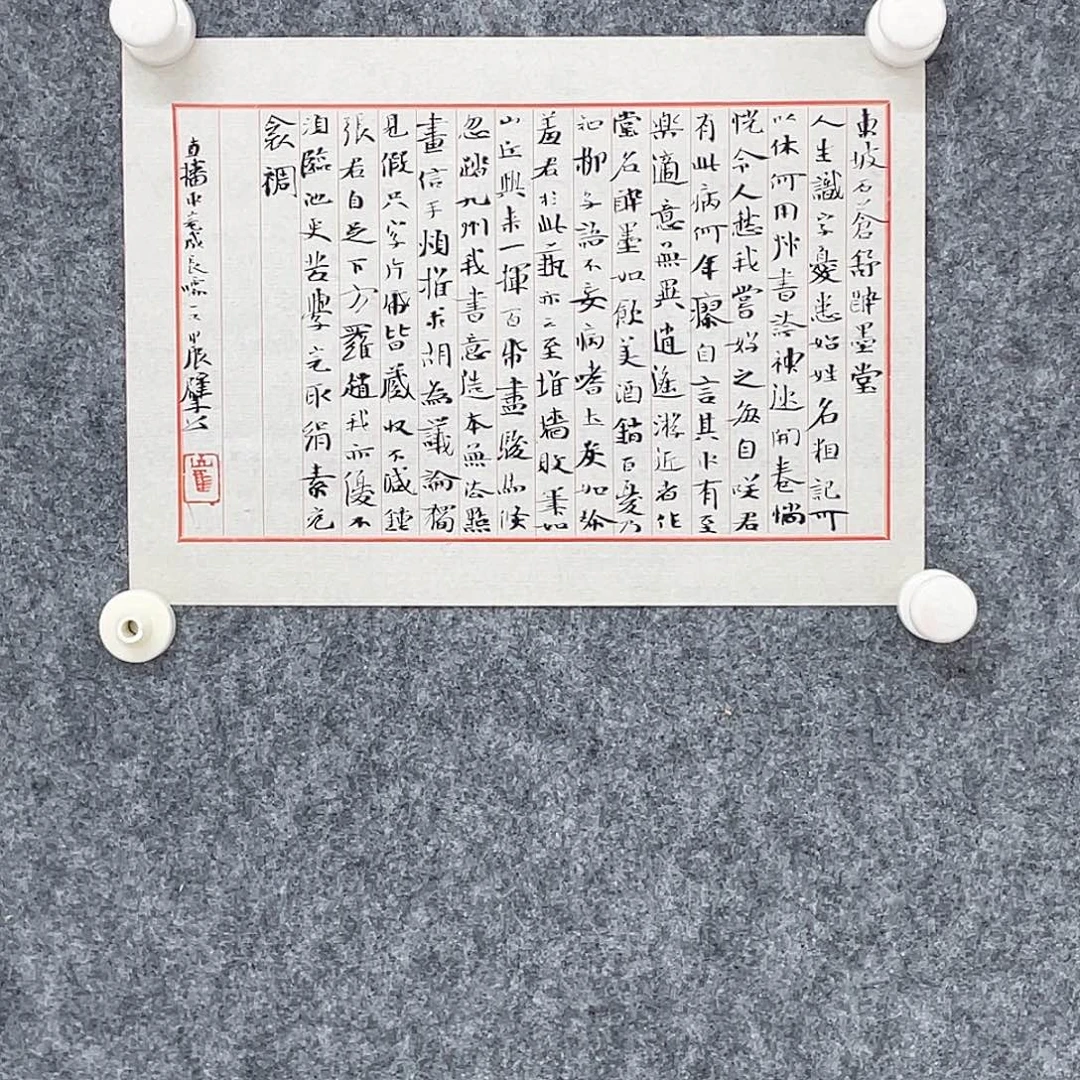 東坡石蒼舒醉墨堂
人生識字憂患始姓名粗記可
以休何用艸書誇神速開卷惝
怳令人愁我嘗好之每自咲君
有此病何年瘳自言其中有至
樂適意無異逍遙游近者作
堂名醉墨如飲美酒銷百憂乃
知柳子語不妄病嗜土炭如珍
羞君於此藝亦云至堆墻敗筆如
山丘興来一揮百帋盡駿馬倏
忽踏九州我書意造本無法點
畫信手煩推求胡為議論獨
見假只字片帋皆藏收不減鍾
張君自足下方羅趙我亦優不
須臨池更苦學完取絹素充
衾裯
直播中